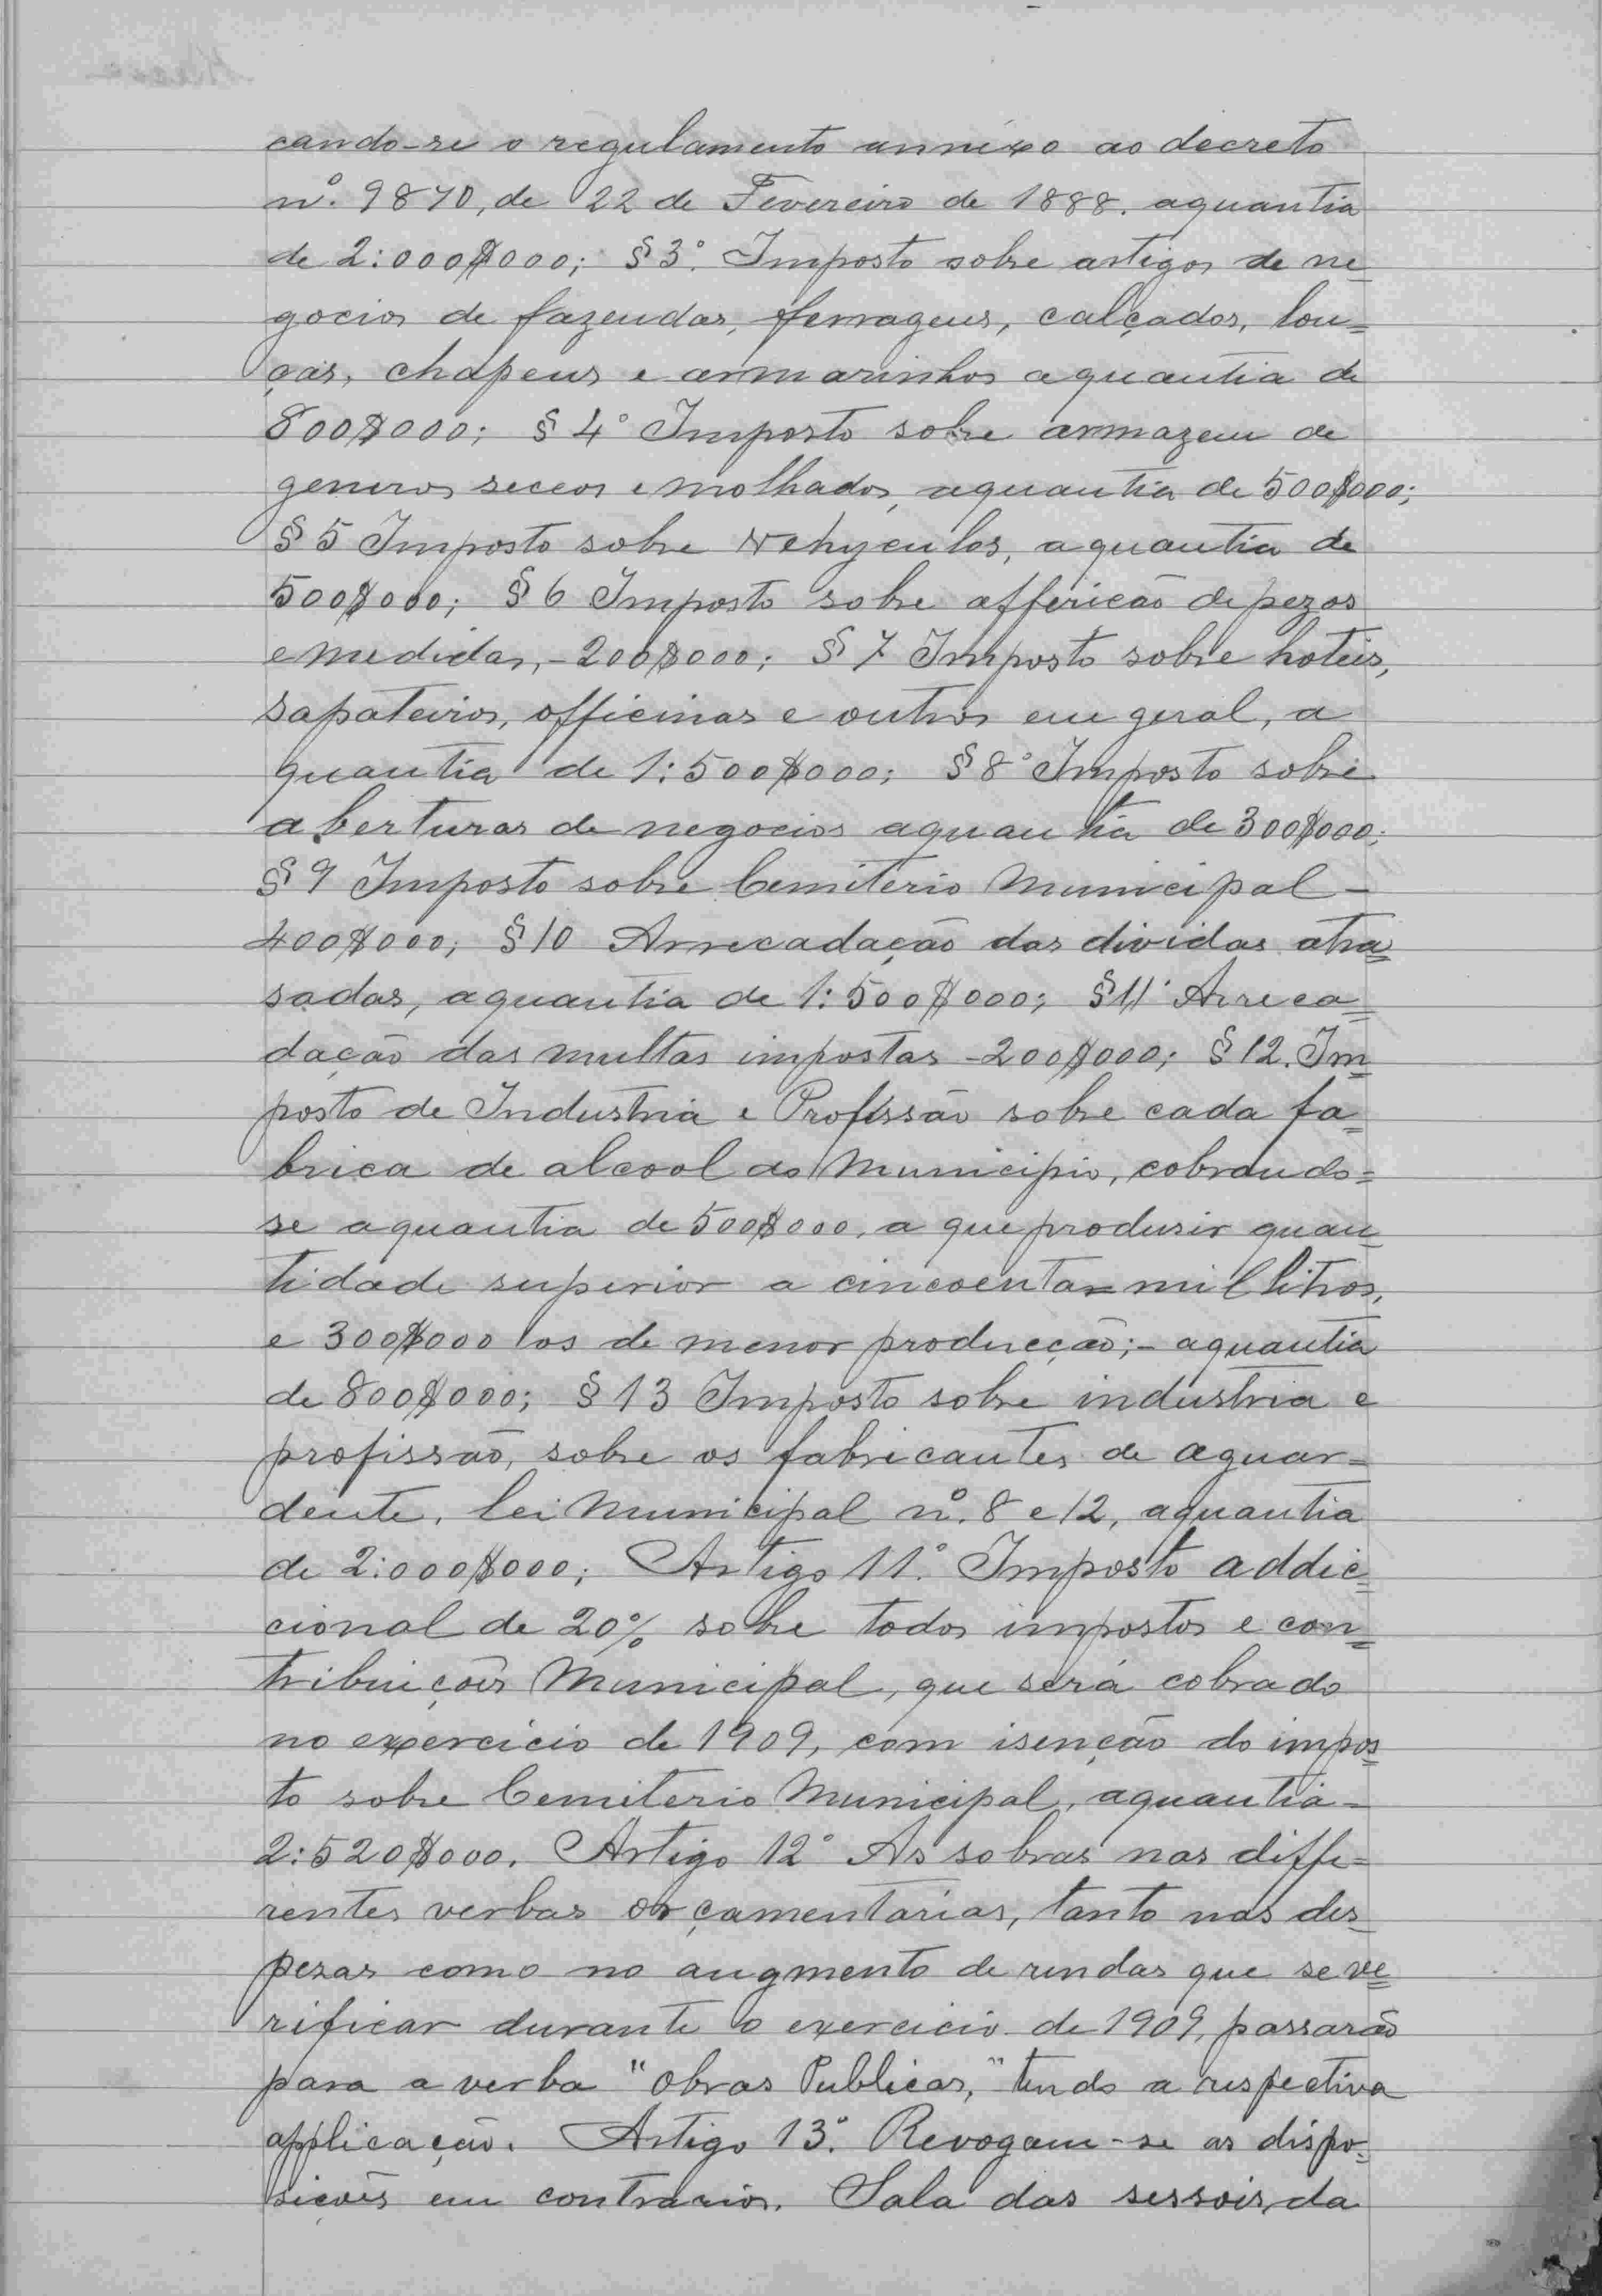 cando-se o regulamento annexo ao decreto
nº. 9870, de 22 de Fevereiro de 1888. aquantia
de 2:000$000; § 3º. Imposto sobre artigos de ne=
gocios de fazendas, ferragens, calçados, lou=
ças, chapeus e armarinhos aquantia de
800$000; § 4º Imposto sobre armazem de
generos seccos e molhados, aquantia de 500$000;
§ 5 Imposto sobre Vehyculos, aquantia de
500$000; § 6 Imposto sobre afferição de pezos
e medidas, - 200$000; § 7 Imposto sobre hoteis,
sapateiros, officinas e outros em geral, a
quantia de 1:500$000; § 8º Imposto sobre
aberturas de negocios aquantia de 300$000;
§ 9 Imposto sobre Cemiterio Municipal -
400$000; § 10 Arrecadação das dividas atra=
sadas, aquantia de 1:500$000; § 11º Arreca=
dação das multas impostas - 200$000; § 12. Im=
posto de Industria e Profissão sobre cada fa=
brica de alcool do Municipio, cobrando=
se aquantia de 500$000, a que produsir quan=
tidade superior a cincoenta mil litros,
e 300$000 os de menor producção; - aquantia
de 800$000; § 13 Imposto sobre industria e
profissão, sobre os fabricantes de aguar=
dente, lei Municipal nº. 8 e 12, aquantia
de 2:000$000; Artigo 11º. Imposto addic=
cional de 20% sobre todos impostos e con=
tribuições Municipal, que será cobrado
no exercicio de 1909, com isenção do impos=
to sobre Cemiterio Municipal, aquantia =
2:520$000. Artigo 12º As sobras nas diffe=
rentes verbas orçamentarias, tanto nas des=
pezas como no augmento de rendas que se ve=
rificar durante o exercicio de 1909, passarão
para a verba "Obras Publicas," tendo a respectiva
applicação. Artigo 13º. Revogam-se as dispo=
sições em contrarios. Sala das sessois, da